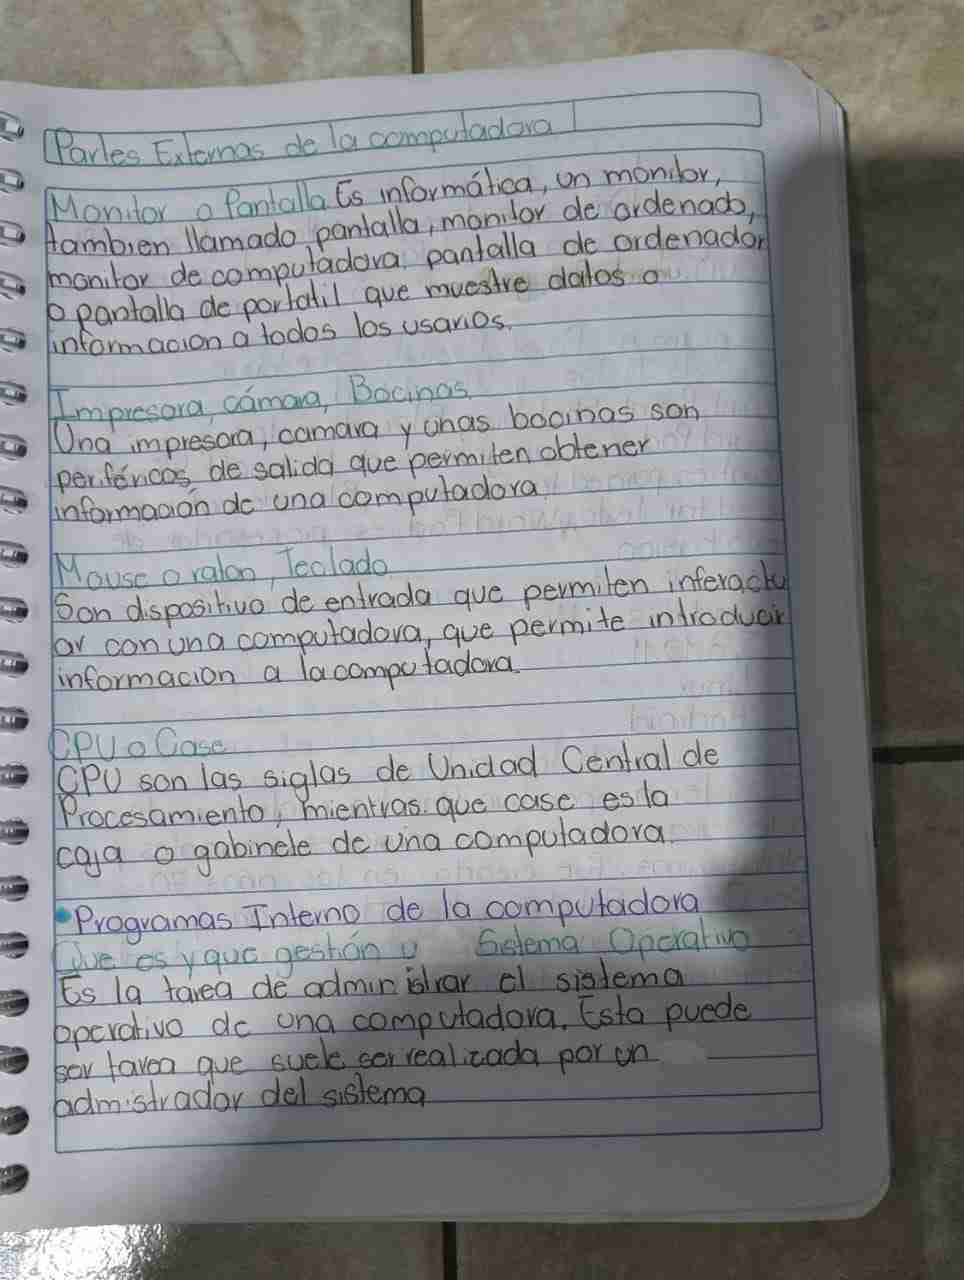 Partes Externas de la computadora
Monitor o Pantalla Es informática, un monitor,
tambien llamado pantalla, monitor de ordenado,
monitor de computadora, pantalla de ordenador
o pantalla de portatil que muestre datos o
informacion a todos los usarios.
Impresora, cámara, Bocinas
Una impresora, camara y unas bocinas son
periféricos de salida que permiten obtener
información de una computadora
Mouse o raton, Teclado
Son dispositivo de entrada que permiten interactu
ar con una computadora, que permite introducir
informacion a la computadora
CPU o Case
CPU son las siglas de Unidad Central de
Procesamiento, mientras que case es la
caja o gabinete de una computadora.
• Programas Interno de la computadora
Que es y que gestión u Sistema Operativo
Es la tarea de administrar el sistema
operativo de una computadora. Esta puede
ser tarea que suele ser realizada por un
admistrador del sistema